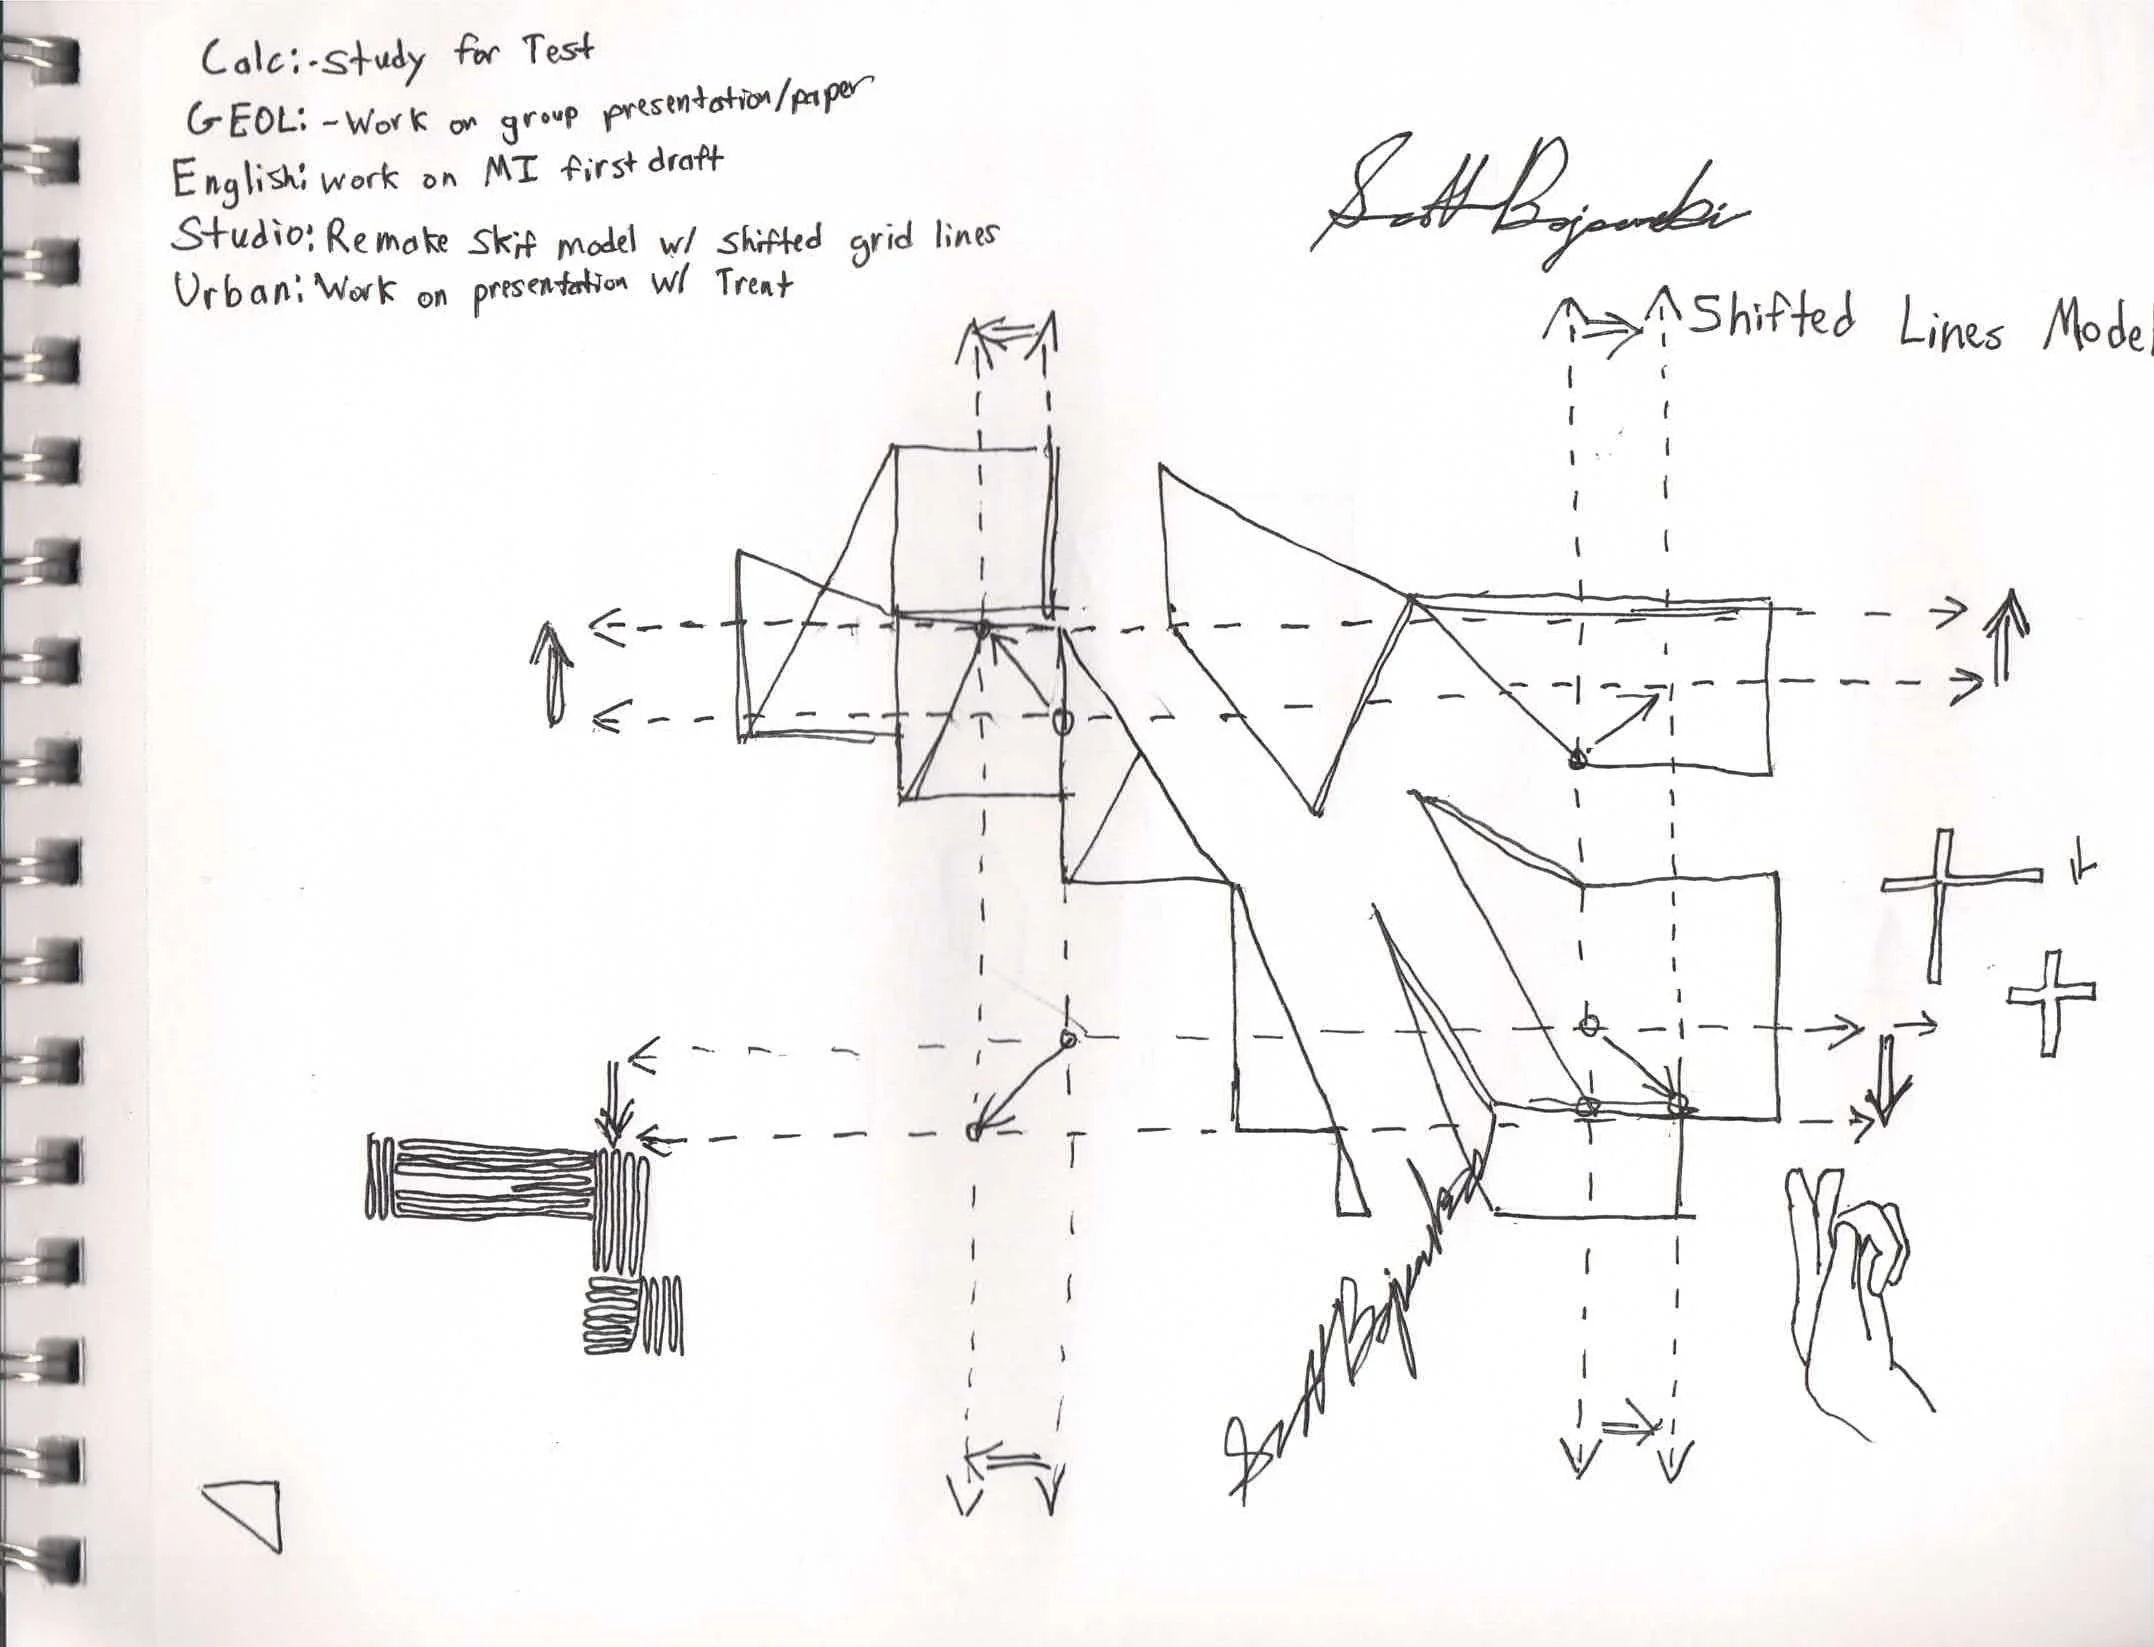 Calc:-study for Test
GEOL: -Work on group presentation/paper
English: work on MI first draft
Studio: Remake Skif model w/ shifted grid lines
Urban: Work on presentation w/ Trent
Scott
Shifted Lines Model
Scott